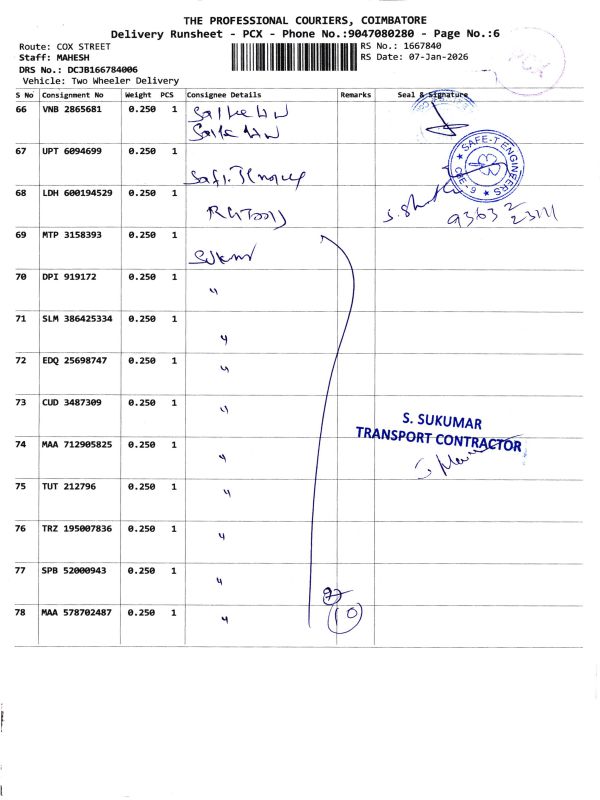 THE PROFESSIONAL COURIERS, COIMBATORE
Delivery Runsheet - PCX - Phone No.:9047080280 - Page No.:6
Route: COX STREET
RS No.: 1667840
Staff: MAHESH
RS Date: 07-Jan-2026
DRS No.: DCJB166784006
Vehicle: Two Wheeler Delivery
S No Consignment No Weight PCS Consignee Details Remarks Seal & Signature
66 VNB 2865681 0.250 1
67 UPT 6094699 0.250 1
SAFE-T ENGINEERS
CBE-6
68 LDH 600194529 0.250 1
69 MTP 3158393 0.250 1
70 DPI 919172 0.250 1 "
71 SLM 386425334 0.250 1 "
72 EDQ 25698747 0.250 1 "
73 CUD 3487309 0.250 1 "
S. SUKUMAR
TRANSPORT CONTRACTOR
74 MAA 712905825 0.250 1 "
75 TUT 212796 0.250 1 "
76 TRZ 195007836 0.250 1 "
77 SPB 52000943 0.250 1 "
78 MAA 578702487 0.250 1 " 10